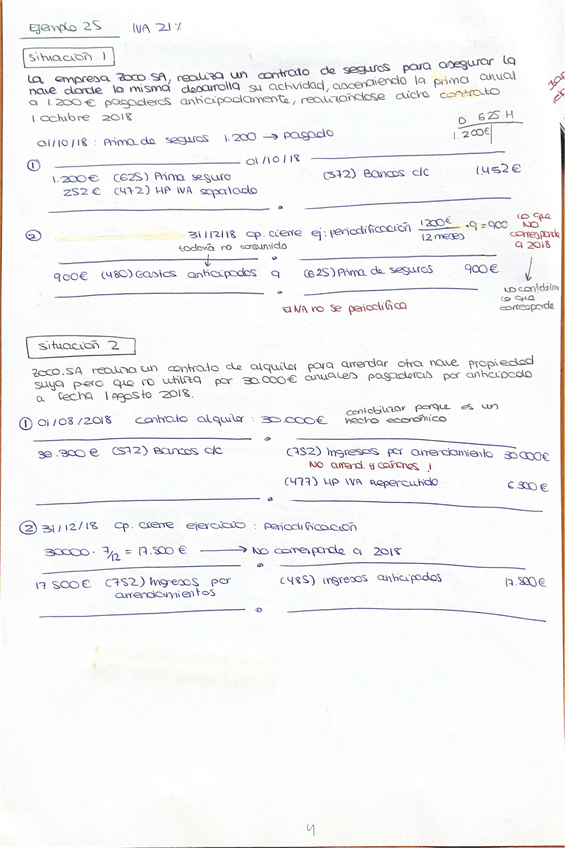 Ejemplo 25 IVA 21%
Situación 1
La empresa Zoco.SA, realiza un contrato de seguros para asegurar la
nave donde la misma desarrolla su actividad, ascendiendo la prima anual
a 1.200€ pagaderos anticipadamente, realizándose dicho contrato
1 octubre 2018
D 625 H
1.200€
01/10/18 : Prima de seguros 1.200 → Pagado
① 01/10/18
1.200€ (625) Prima seguro (572) Bancos c/c 1452€
252€ (472) HP IVA soportado
② 31/12/18 cp. cierre ej: Periodificación 1200€/12 meses · 9 = 900
lo que NO corresponde a 2018
todavía no consumido
900€ (480) Gastos anticipados a (625) Prima de seguros 900€
lo que corresponde
IVA no se periodifica
Situación 2
Zoco.SA realiza un contrato de alquiler para arrendar otra nave propiedad
suya pero que no utiliza por 30.000€ anuales pagaderas por anticipado
a fecha 1 Agosto 2018.
① 01/08/2018 Contrato alquiler : 30.000€ contabilizar porque es un
hecho económico
36.300€ (572) Bancos c/c (752) Ingresos por arrendamiento 30000€
No arrend. y cánones !
(477) HP IVA Repercutido 6300€
② 31/12/18 cp. cierre ejercicio : Periodificación
30000 · 7/12 = 17.500€ → NO corresponde a 2018
17500€ (752) Ingresos por (485) ingresos anticipados 17.500€
arrendamientos
4